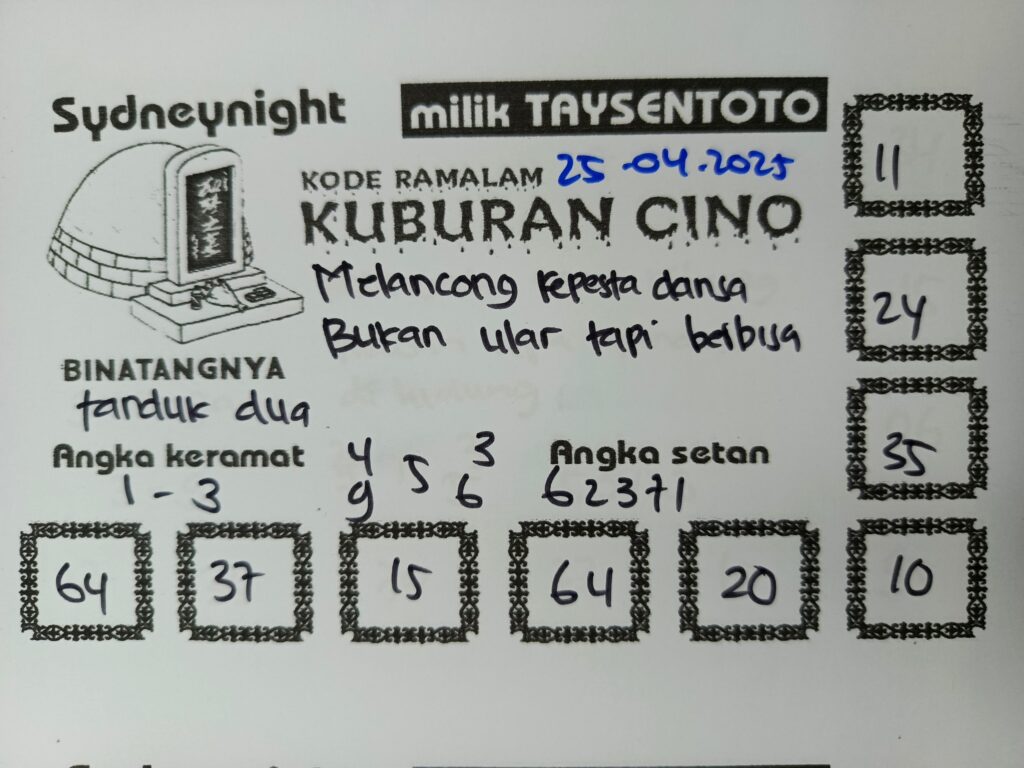 Sydneynight
milik TAYSENTOTO
KODE RAMALAM 25.04.2025
KUBURAN CINO
Melancong kepesta dansa
Bukan ular tapi berbisa
BINATANGNYA
tanduk dua
Angka keramat
1 - 3
4 5 3
9 6
Angka setan
62371
11
24
35
64 37 15 64 20 10